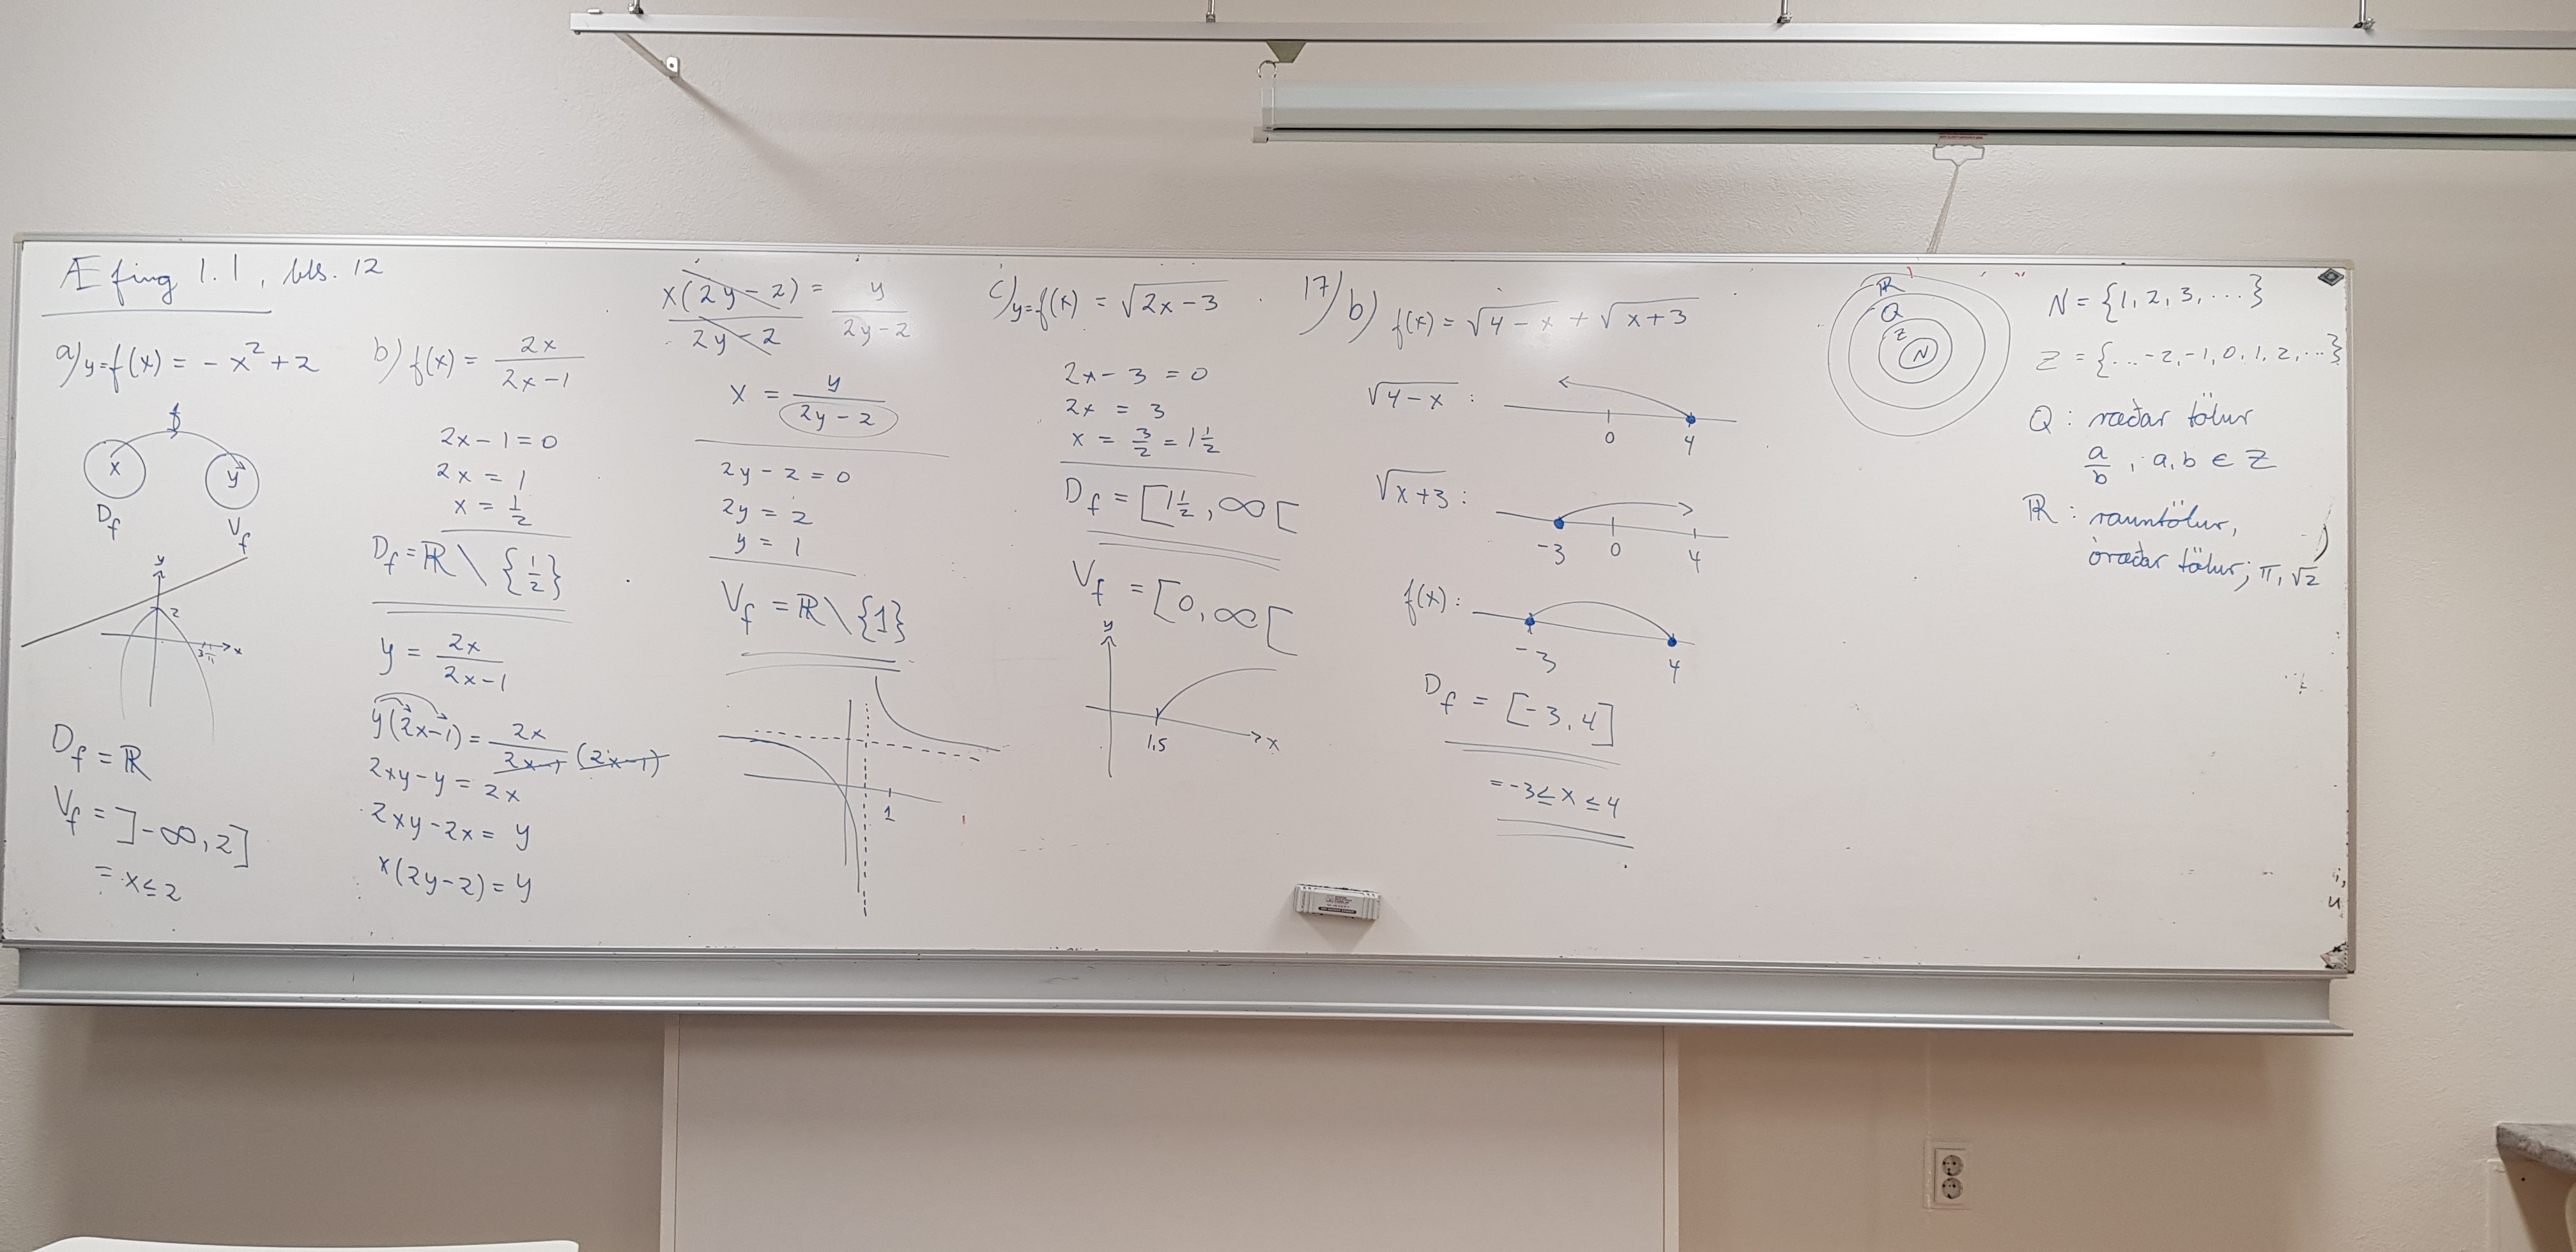 Æfing 1.1, bls. 12
a) y=f(x) = -x² + 2
f
x
y
D_f
V_f
y
2
x
D_f = ℝ
V_f = ]-∞, 2]
= x ≤ 2
b) f(x) = 2x/(2x-1)
2x - 1 = 0
2x = 1
x = 1/2
D_f = ℝ \ {1/2}
y = 2x/(2x-1)
y(2x-1) = 2x/(2x-1) (2x-1)
2xy - y = 2x
2xy - 2x = y
x(2y-2) = y
x(2y-2)/(2y-2) = y/(2y-2)
x = y/(2y-2)
2y - 2 = 0
2y = 2
y = 1
V_f = ℝ \ {1}
1
c) y=f(x) = √(2x-3)
2x - 3 = 0
2x = 3
x = 3/2 = 1 1/2
D_f = [1 1/2, ∞[
V_f = [0, ∞[
y
1,5
x
17) b) f(x) = √(4-x) + √(x+3)
√(4-x) :
0 4
√(x+3) :
-3 0 4
f(x) :
-3 4
D_f = [-3, 4]
= -3 ≤ x ≤ 4
ℝ
Q
Z
N
N = {1, 2, 3, ...}
Z = {... -2, -1, 0, 1, 2, ...}
Q : ræðar tölur
a/b , a, b ∈ Z
ℝ : rauntölur,
óræðar tölur; π, √2